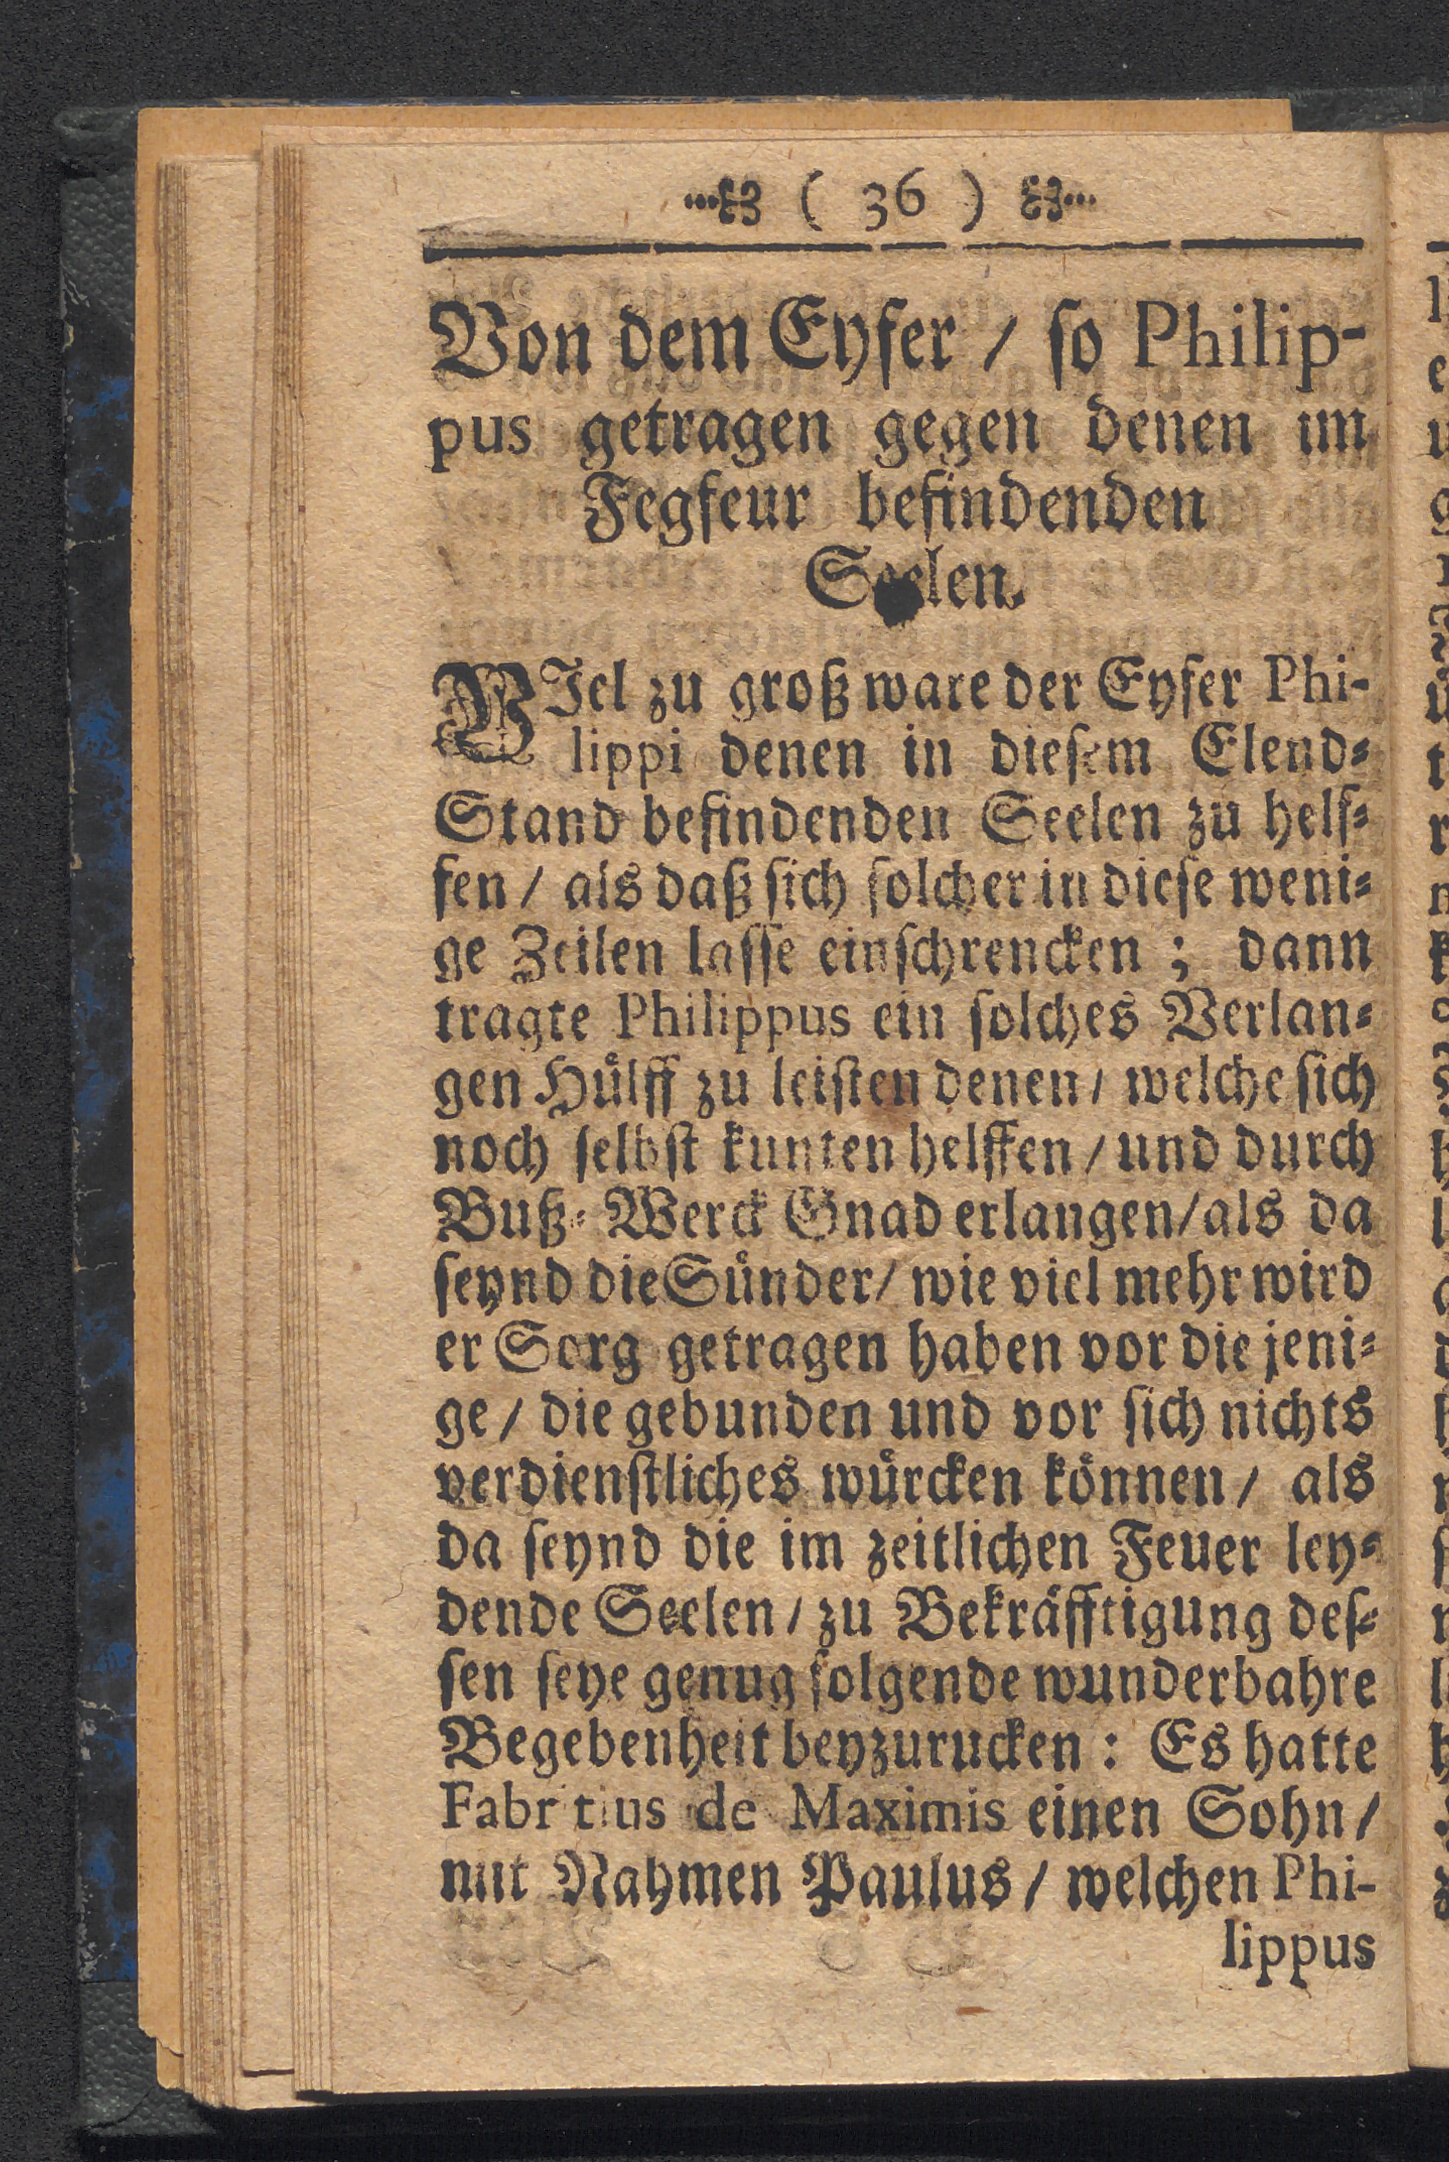 ( 36 )
Von dem Eyfer / ſo Philip-
pus getragen gegen denen im
Fegfeur befindenden
Seelen.
VIel zu groß ware der Eyfer Phi-
lippi denen in dieſem Elend⸗
Stand befindenden Seelen zu helf⸗
fen / als daß ſich ſolcher in dieſe weni⸗
ge Zeilen laſſe einſchrencken ; dann
tragte Philippus ein ſolches Verlan⸗
gen Huͤlff zu leiſten denen / welche ſich
noch ſelbſt kunten helffen / und durch
Buß⸗Werck Gnad erlangen / als da
ſeynd die Suͤnder / wie viel mehr wird
er Sorg getragen haben vor die jeni⸗
ge / die gebunden und vor ſich nichts
verdienſtliches wuͤrcken koͤnnen / als
da ſeynd die im zeitlichen Feuer ley⸗
dende Seelen / zu Bekraͤfftigung deſ⸗
ſen ſeye genug folgende wunderbahre
Begebenheit beyzurucken : Es hatte
Fabritius de Maximis einen Sohn /
mit Nahmen Paulus / welchen Phi-
lippus